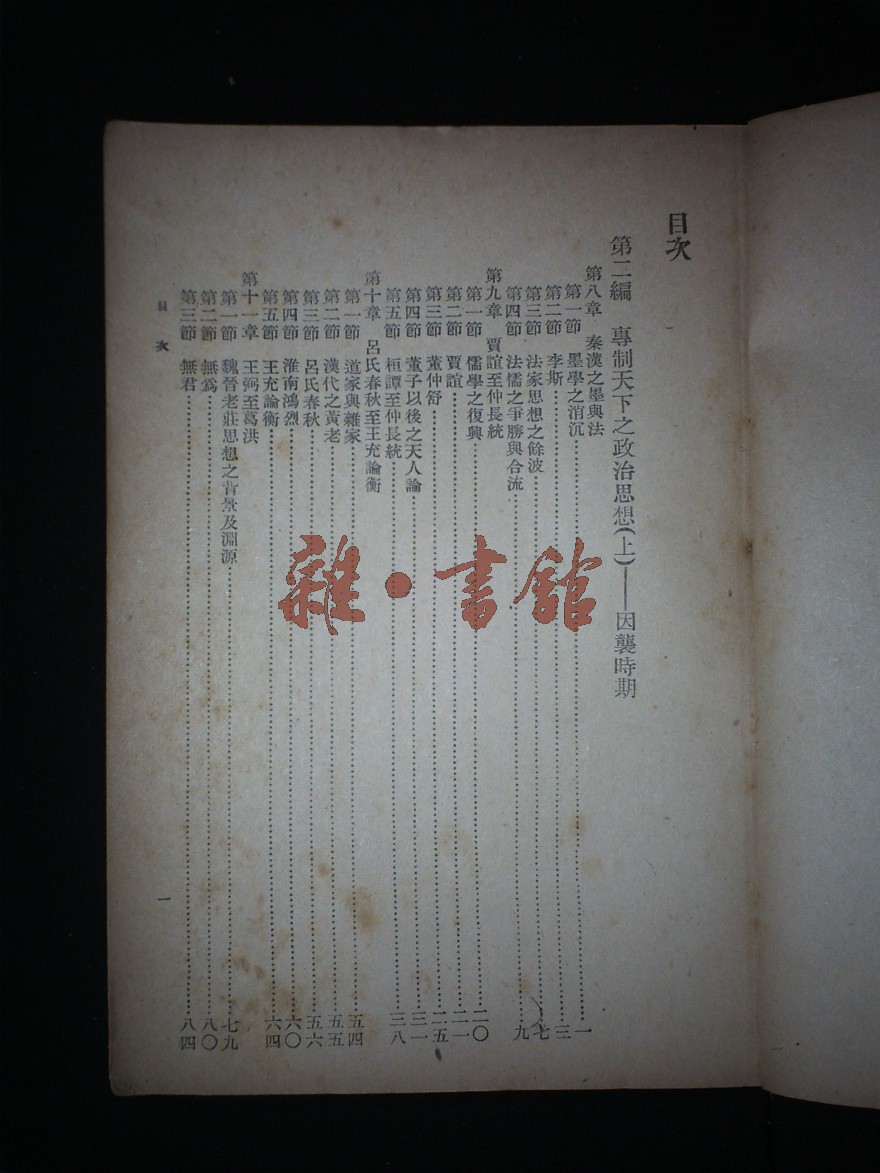 目次
第二編　專制天下之政治思想(上)——因襲時期
第八章　秦漢之墨與法
第一節　墨學之消沉…………一
第二節　李斯…………三
第三節　法家思想之餘波…………七
第四節　法儒之爭勝與合流…………九
第九章　賈誼至仲長統
第一節　儒學之復興…………二〇
第二節　賈誼…………二一
第三節　董仲舒…………二五
第四節　董子以後之天人論…………三一
第五節　桓譚至仲長統…………三八
第十章　呂氏春秋至王充論衡
第一節　道家與雜家…………五四
第二節　漢代之黃老…………五五
第三節　呂氏春秋…………五六
第四節　淮南鴻烈…………六〇
第五節　王充論衡…………六四
第十一章　王弼至葛洪
第一節　魏晉老莊思想之背景及淵源…………七九
第二節　無為…………八〇
第三節　無君…………八四
目次
一
雜·書館